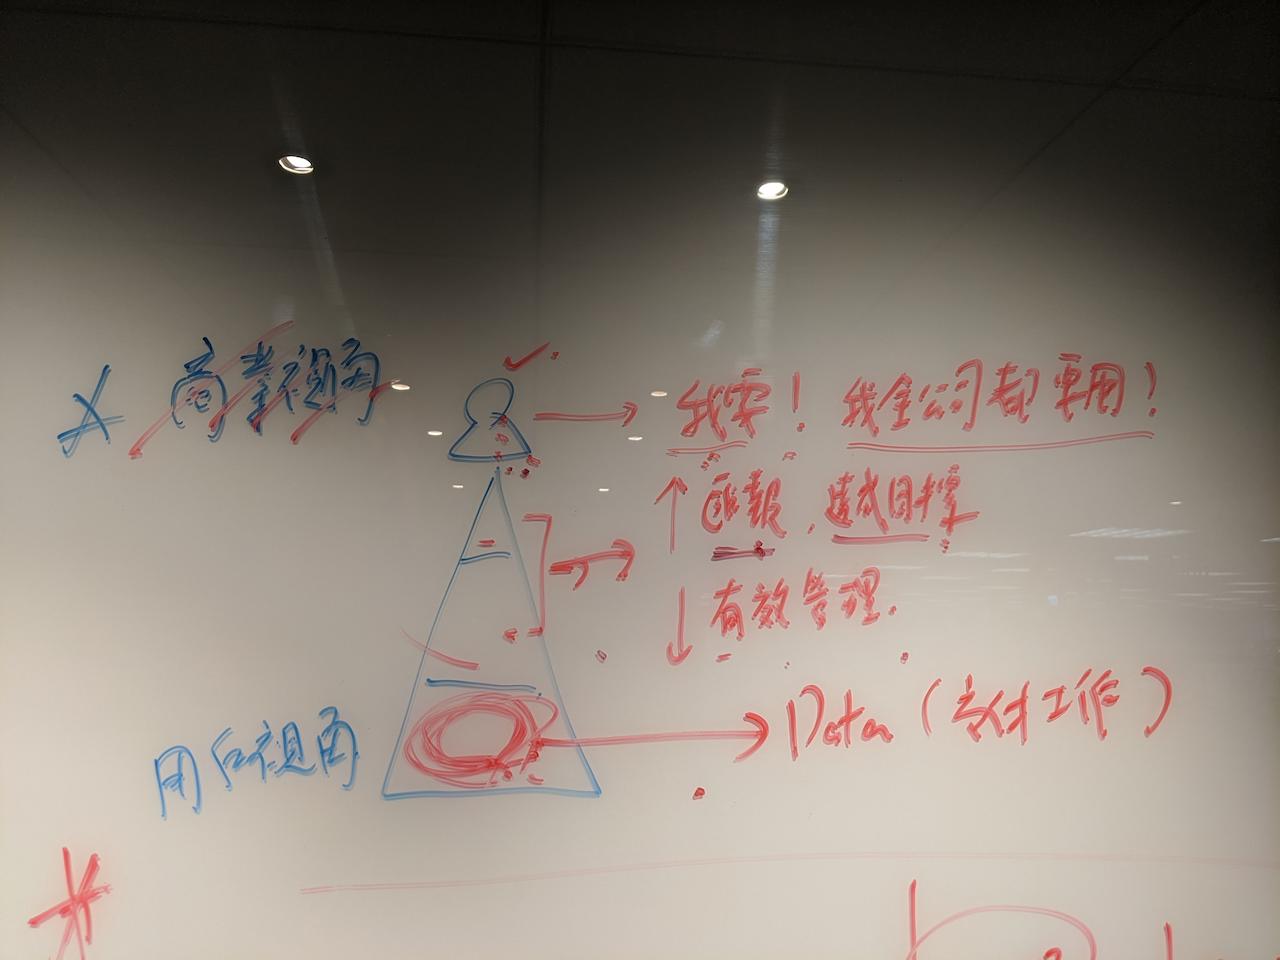 商業視角
我要! 我全公司都要用!
↑ 匯報, 達成目標
↓ 有效管理.
用戶視角
Data (交付工作)